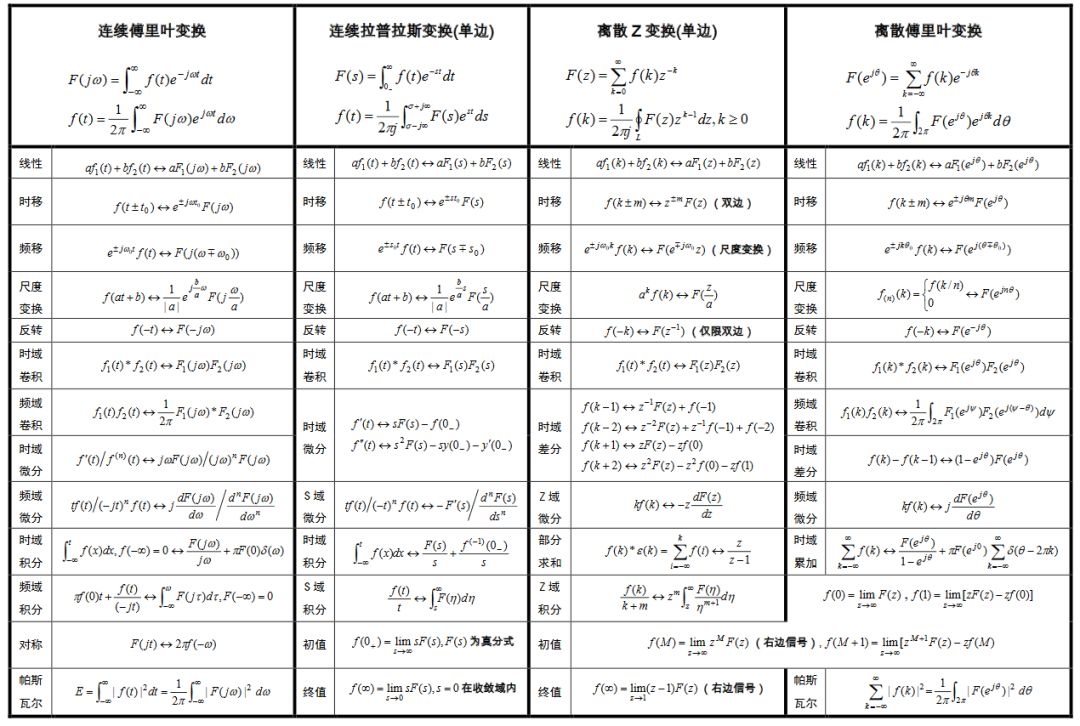 连续傅里叶变换 连续拉普拉斯变换(单边) 离散 Z 变换(单边) 离散傅里叶变换
F(jω)=∫_{-∞}^{∞} f(t)e^{-jωt}dt F(s)=∫_{0_-}^{∞} f(t)e^{-st}dt F(z)=∑_{k=0}^{∞} f(k)z^{-k} F(e^{jθ})=∑_{k=-∞}^{∞} f(k)e^{-jθk}
f(t)=1/2π ∫_{-∞}^{∞} F(jω)e^{jωt}dω f(t)=1/2πj ∫_{σ-j∞}^{σ+j∞} F(s)e^{st}ds f(k)=1/2πj ∮_L F(z)z^{k-1}dz, k≥0 f(k)=1/2π ∫_{2π} F(e^{jθ})e^{jθk}dθ
线性 af₁(t)+bf₂(t)↔aF₁(jω)+bF₂(jω) 线性 af₁(t)+bf₂(t)↔aF₁(s)+bF₂(s) 线性 af₁(k)+bf₂(k)↔aF₁(z)+bF₂(z) 线性 af₁(k)+bf₂(k)↔aF₁(e^{jθ})+bF₂(e^{jθ})
时移 f(t±t₀)↔e^{±jωt₀}F(jω) 时移 f(t±t₀)↔e^{±st₀}F(s) 时移 f(k±m)↔z^{±m}F(z)（双边） 时移 f(k±m)↔e^{±jθm}F(e^{jθ})
频移 e^{±jω₀t}f(t)↔F(j(ω∓ω₀)) 频移 e^{±s₀t}f(t)↔F(s∓s₀) 频移 e^{±jω₀k}f(k)↔F(e^{∓jω₀}z)（尺度变换） 频移 e^{±jkθ₀}f(k)↔F(e^{j(θ∓θ₀)})
尺度变换 f(at+b)↔1/|a| e^{j(b/a)ω}F(j ω/a) 尺度变换 f(at+b)↔1/|a| e^{(b/a)s}F(s/a) 尺度变换 a^k f(k)↔F(z/a) 尺度变换 f_{(n)}(k)={f(k/n) 0 ↔F(e^{jnθ})
反转 f(−t)↔F(−jω) 反转 f(−t)↔F(−s) 反转 f(−k)↔F(z^{-1})（仅限双边） 反转 f(−k)↔F(e^{-jθ})
时域卷积 f₁(t)*f₂(t)↔F₁(jω)F₂(jω) 时域卷积 f₁(t)*f₂(t)↔F₁(s)F₂(s) 时域卷积 f₁(t)*f₂(t)↔F₁(z)F₂(z) 时域卷积 f₁(k)*f₂(k)↔F₁(e^{jθ})F₂(e^{jθ})
频域卷积 f₁(t)f₂(t)↔1/2π F₁(jω)*F₂(jω)
时域微分 f'(t)↔sF(s)−f(0₋)
f''(t)↔s²F(s)−sy(0₋)−y'(0₋)
时域差分 f(k−1)↔z^{-1}F(z)+f(−1)
f(k−2)↔z^{-2}F(z)+z^{-1}f(−1)+f(−2)
f(k+1)↔zF(z)−zf(0)
f(k+2)↔z²F(z)−z²f(0)−zf(1)
频域卷积 f₁(k)f₂(k)↔1/2π ∫_{2π} F₁(e^{jψ})F₂(e^{j(ψ−θ)})dψ
时域微分 f'(t)/f^{(n)}(t)↔jωF(jω)/(jω)^n F(jω) 时域差分 f(k)−f(k−1)↔(1−e^{jθ})F(e^{jθ})
频域微分 tf(t)/(−jt)^n f(t)↔j dF(jω)/dω / d^nF(jω)/dω^n S 域微分 tf(t)/(−t)^n f(t)↔−F'(s)/ d^nF(s)/ds^n Z 域微分 kf(k)↔−z dF(z)/dz 频域微分 kf(k)↔j dF(e^{jθ})/dθ
时域积分 ∫_{-∞}^{t} f(x)dx, f(−∞)=0↔F(jω)/jω+πF(0)δ(ω) 时域积分 ∫_{-∞}^{t} f(x)dx↔F(s)/s+f^{(−1)}(0₋)/s 部分求和 f(k)*ε(k)=∑_{i=-∞}^{k} f(i)↔z/(z−1) 时域累加 ∑_{k=-∞}^{∞} f(k)↔F(e^{jθ})/(1−e^{jθ})+πF(e^{j0})∑_{k=-∞}^{∞} δ(θ−2πk)
频域积分 πf(0)t+f(t)/(−jt)↔∫_{-∞}^{ω} F(jτ)dτ, F(−∞)=0 S 域积分 f(t)/t↔∫_{s}^{∞} F(η)dη Z 域积分 f(k)/(k+m)↔z^m∫_{z}^{∞} F(η)/η^{m+1} dη f(0)=lim_{z→∞} F(z), f(1)=lim_{z→∞}[zF(z)−zf(0)]
对称 F(jt)↔2πf(−ω) 初值 f(0₊)=lim_{s→∞} sF(s), F(s) 为真分式 初值 f(M)=lim_{z→∞} z^M F(z)（右边信号）, f(M+1)=lim_{z→∞}[z^{M+1}F(z)−zf(M)
帕斯瓦尔 E=∫_{-∞}^{∞} |f(t)|²dt=1/2π ∫_{-∞}^{∞} |F(jω)|² dω 终值 f(∞)=lim_{s→0} sF(s), s=0 在收敛域内 终值 f(∞)=lim_{z→1}(z−1)F(z)（右边信号） 帕斯瓦尔 ∑_{k=-∞}^{∞} |f(k)|²=1/2π ∫_{2π} |F(e^{jθ})|² dθ